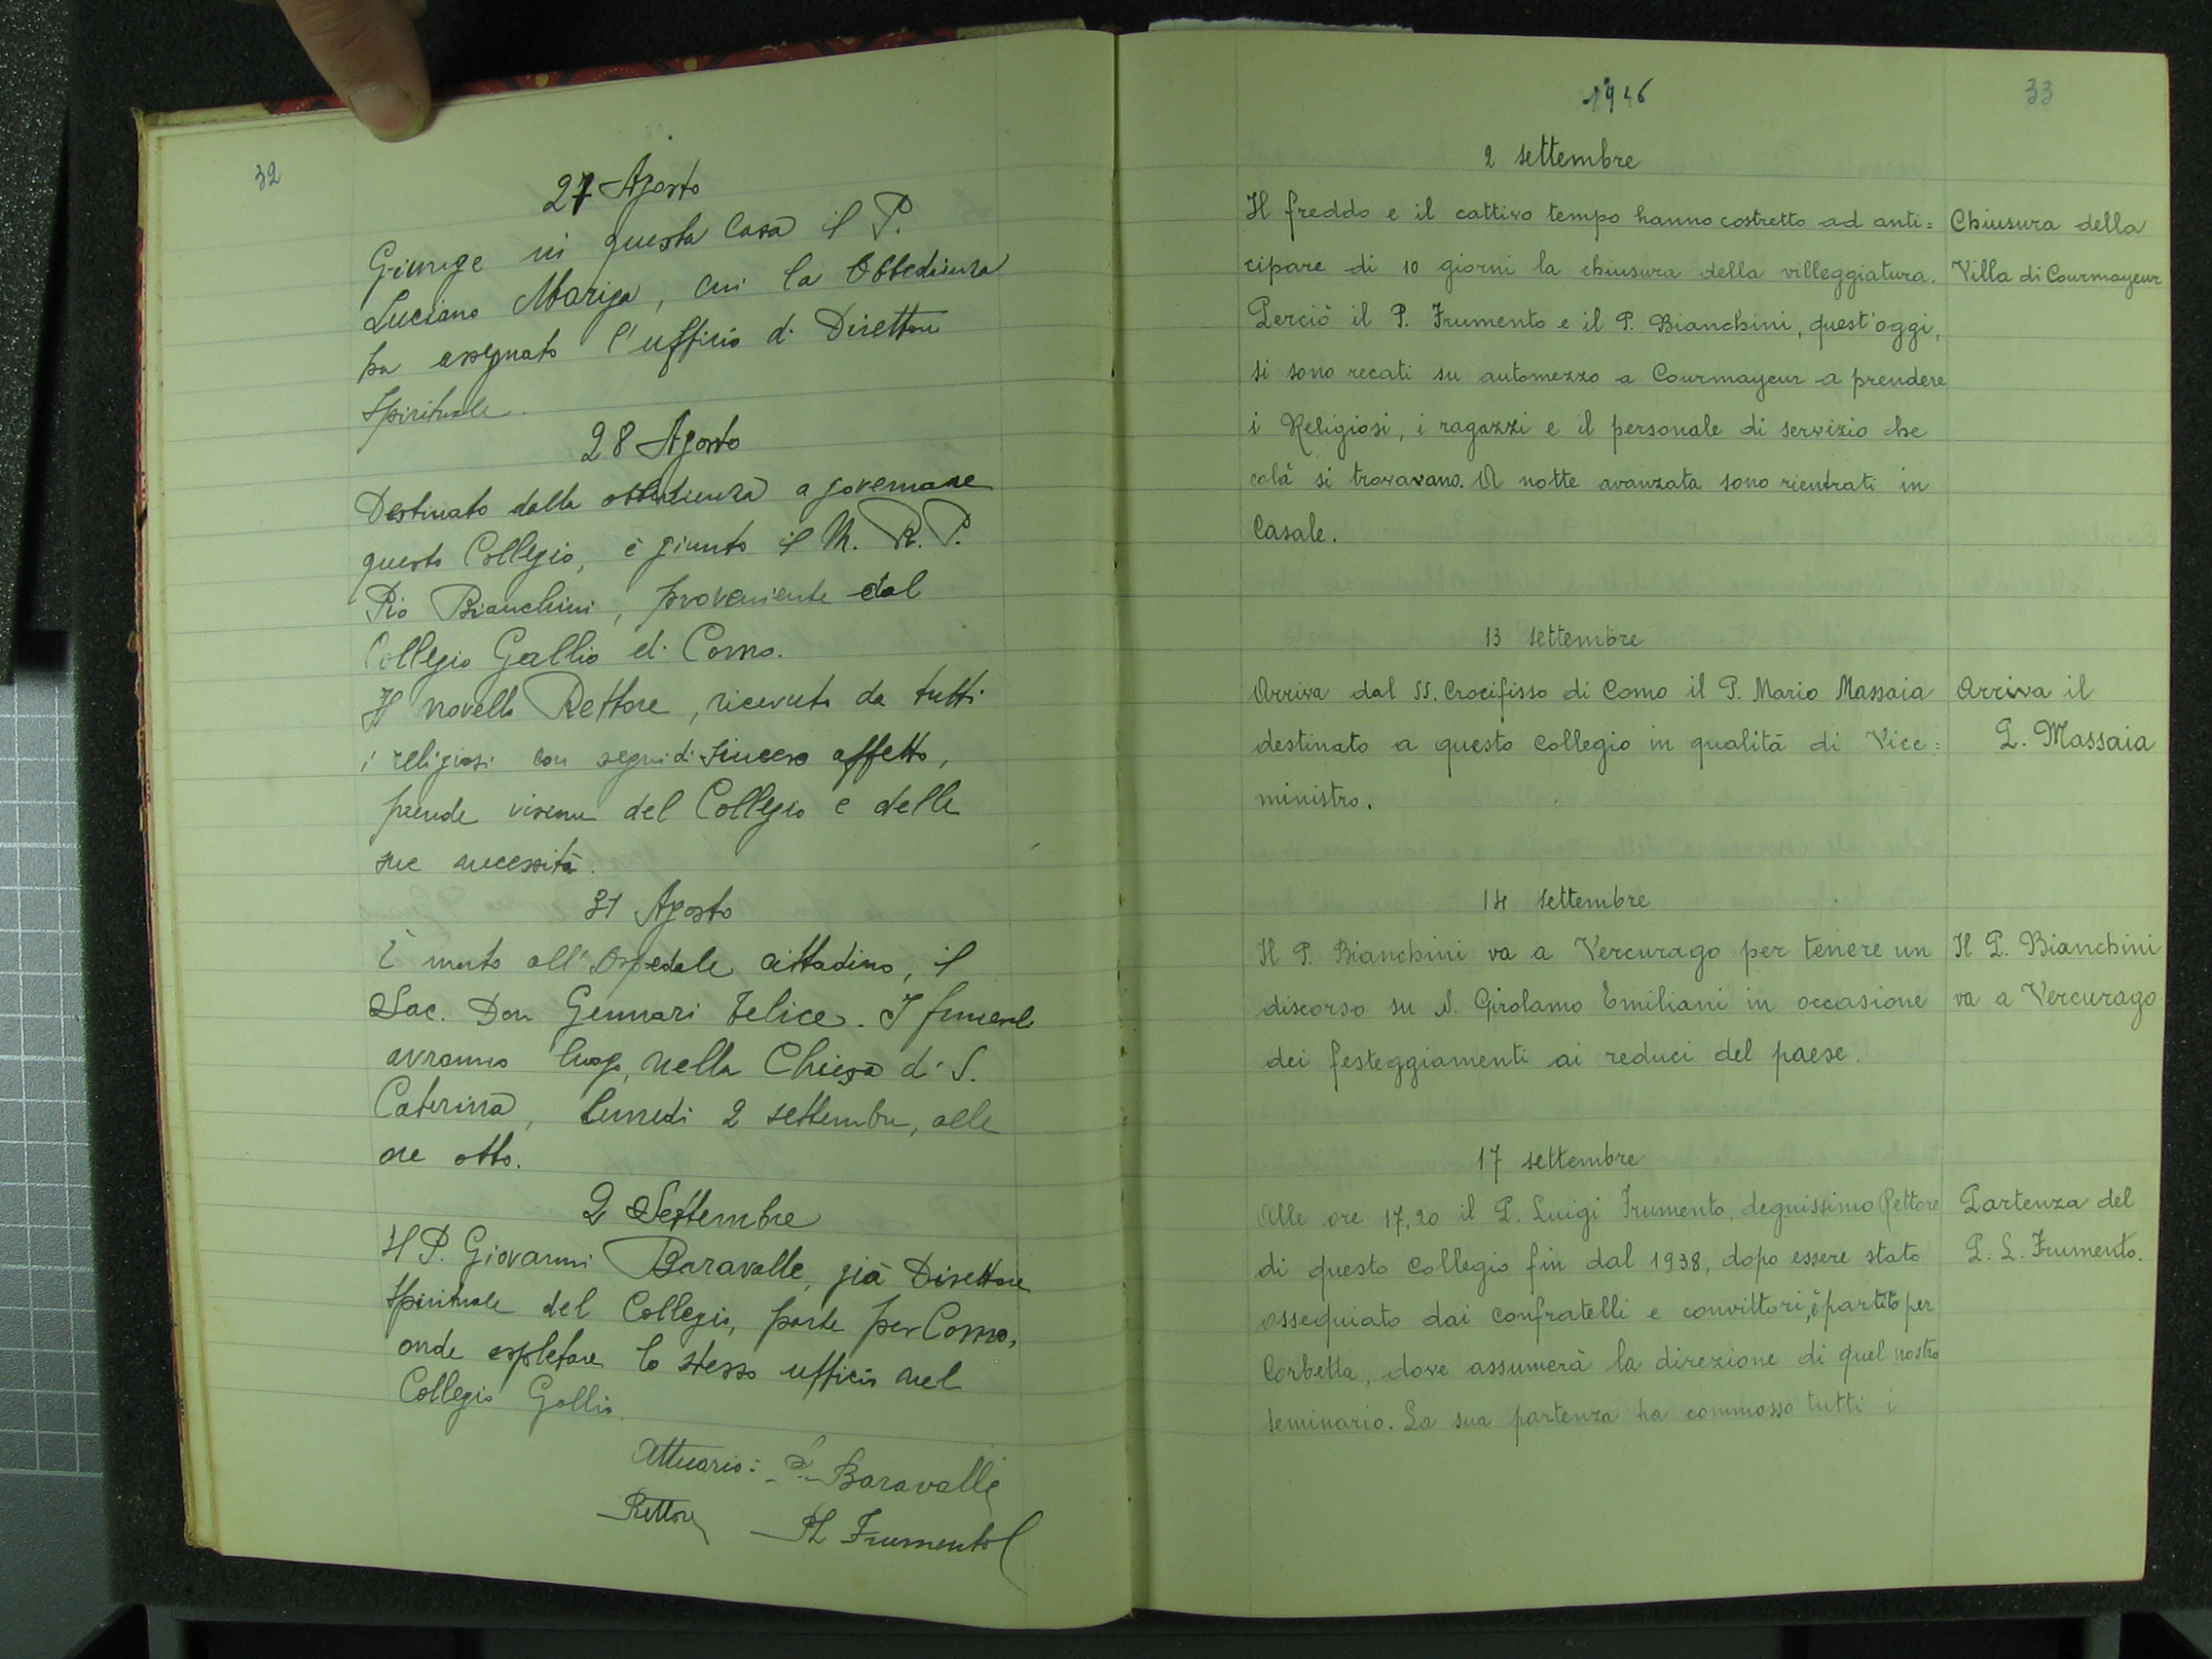 32
27 Agosto
Giunge in questa Casa il P.
Luciano Mariga, cui la Obbedienza
ha assegnato l'ufficio di Direttore
Spirituale.
28 Agosto
Destinato dalla obbedienza a governare
questo Collegio, è giunto il M. R. P.
Pio Bianchini, proveniente dal
Collegio Gallio di Como.
Il novello Rettore, ricevuto da tutti
i religiosi con segni di sincero affetto,
prende visione del Collegio e delle
sue necessità.
31 Agosto
È morto all'Ospedale cittadino, il
Sac. Don Gennari Felice. I funerali
avranno luogo, nella Chiesa di S.
Caterina, lunedi 2 settembre, alle
ore otto.
2 Settembre
Il P. Giovanni Baravalle, già Direttore
Spirituale del Collegio, parte per Como,
onde espletare lo stesso ufficio nel
Collegio Gallio.
Attuario: Baravalle
Rettore PL Frumento
1946
33
2 settembre
Il freddo e il cattivo tempo hanno costretto ad anti=
cipare di 10 giorni la chiusura della villeggiatura.
Perciò il P. Frumento e il P. Bianchini, quest'oggi,
si sono recati su automezzo a Courmayeur a prendere
i Religiosi, i ragazzi e il personale di servizio che
colà si trovavano. A notte avanzata sono rientrati in
Casale.
Chiusura della
Villa di Courmayeur
13 settembre
Arriva dal SS. Crocifisso di Como il P. Mario Massaia
destinato a questo collegio in qualità di Vice=
ministro.
Arriva il
P. Massaia
14 settembre
Il P. Bianchini va a Vercurago per tenere un
discorso su S. Girolamo Emiliani in occasione
dei festeggiamenti ai reduci del paese.
Il P. Bianchini
va a Vercurago
17 settembre
Alle ore 17,20 il P. Luigi Frumento, degnissimo Rettore
di questo collegio fin dal 1938, dopo essere stato
ossequiato dai confratelli e convittori, è partito per
Corbetta, dove assumerà la direzione di quel nostro
seminario. La sua partenza ha commosso tutti i
Partenza del
P. L. Frumento.